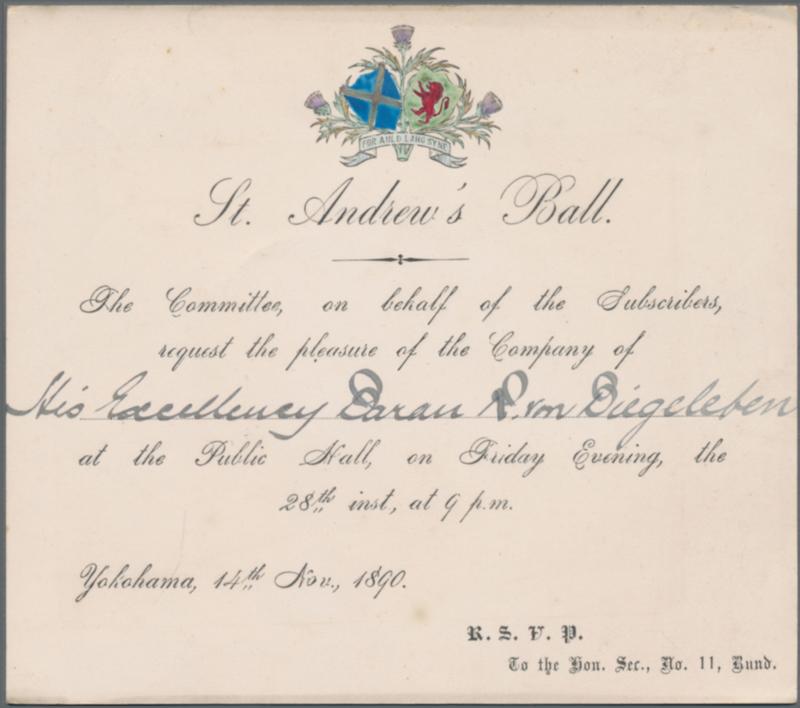 FOR AULD LANG SYNE
St. Andrew's Ball.
The Committee, on behalf of the Subscribers,
request the pleasure of the Company of
His Excellency Baron R. von Biegeleben
at the Public Hall, on Friday Evening, the
28th inst, at 9 p.m.
Yokohama, 14th Nov., 1890.
R. S. V. P.
To the Hon. Sec., No. 11, Bund.